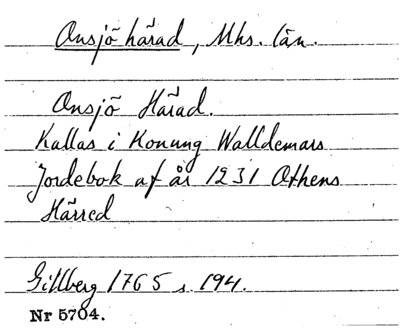 Onsjö härad, Mhs. län.
Onsjö Härad.
Kallas i Konung Walldemars
Jordebok af år 1231 Othens
Härred
Gillberg 1765 s. 194.
Nr 5704.